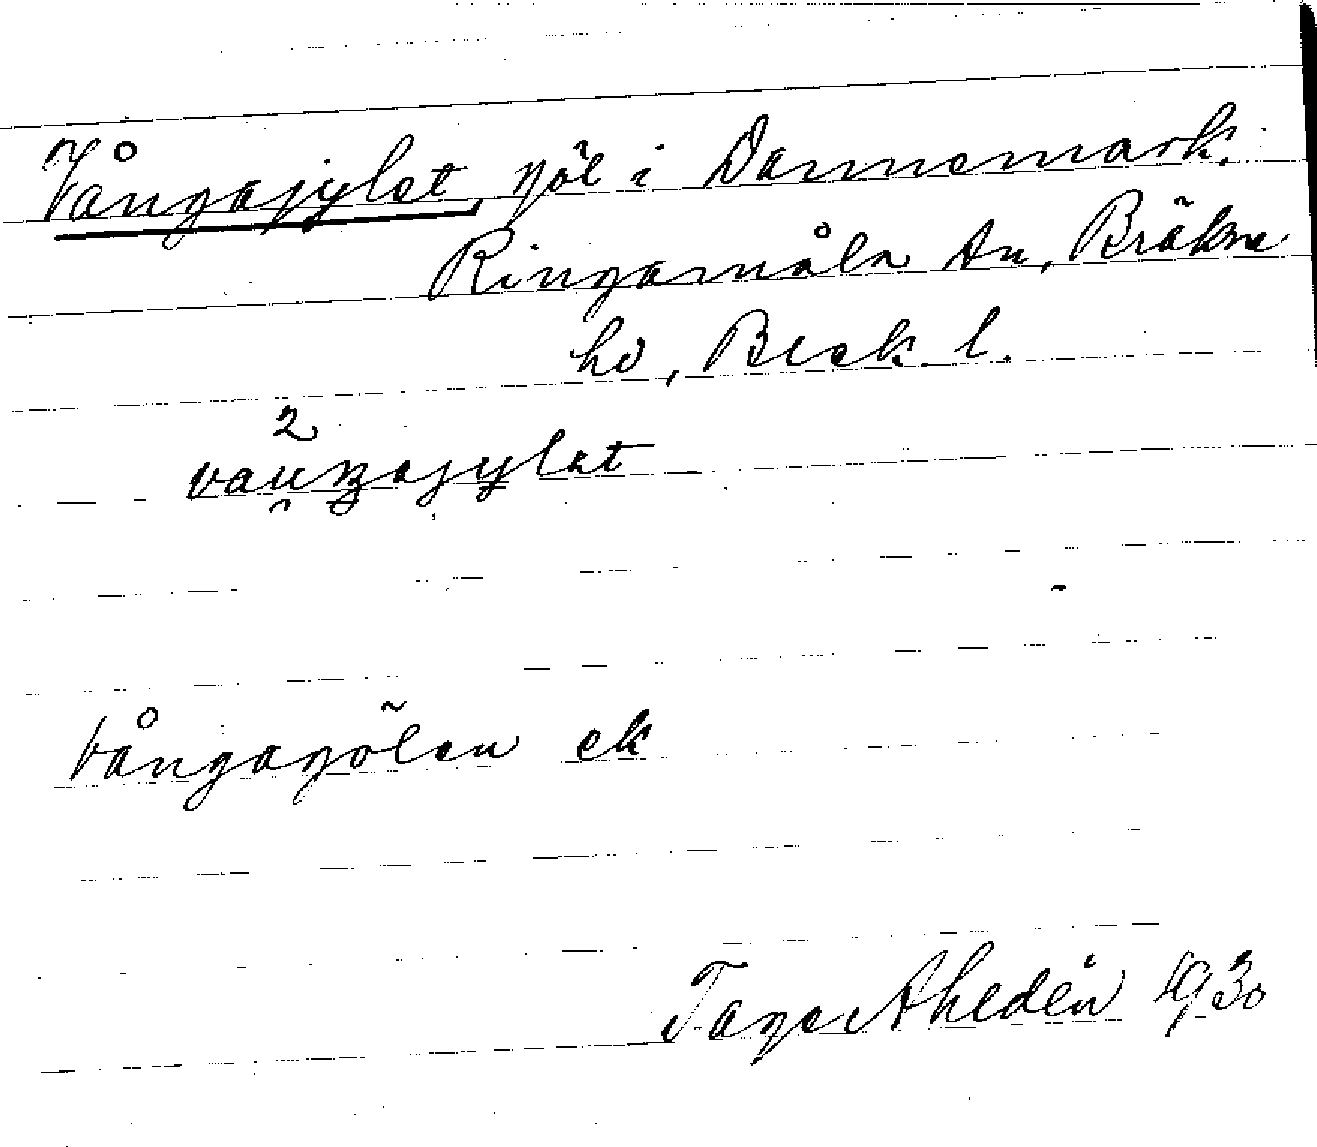 Vångajylet, göl i Dannemark.
Ringamåla sn, Bräkne
hd,Blek. l.
2
vauŋajylet
Vångagölen ek
Tage Ahldén 1930